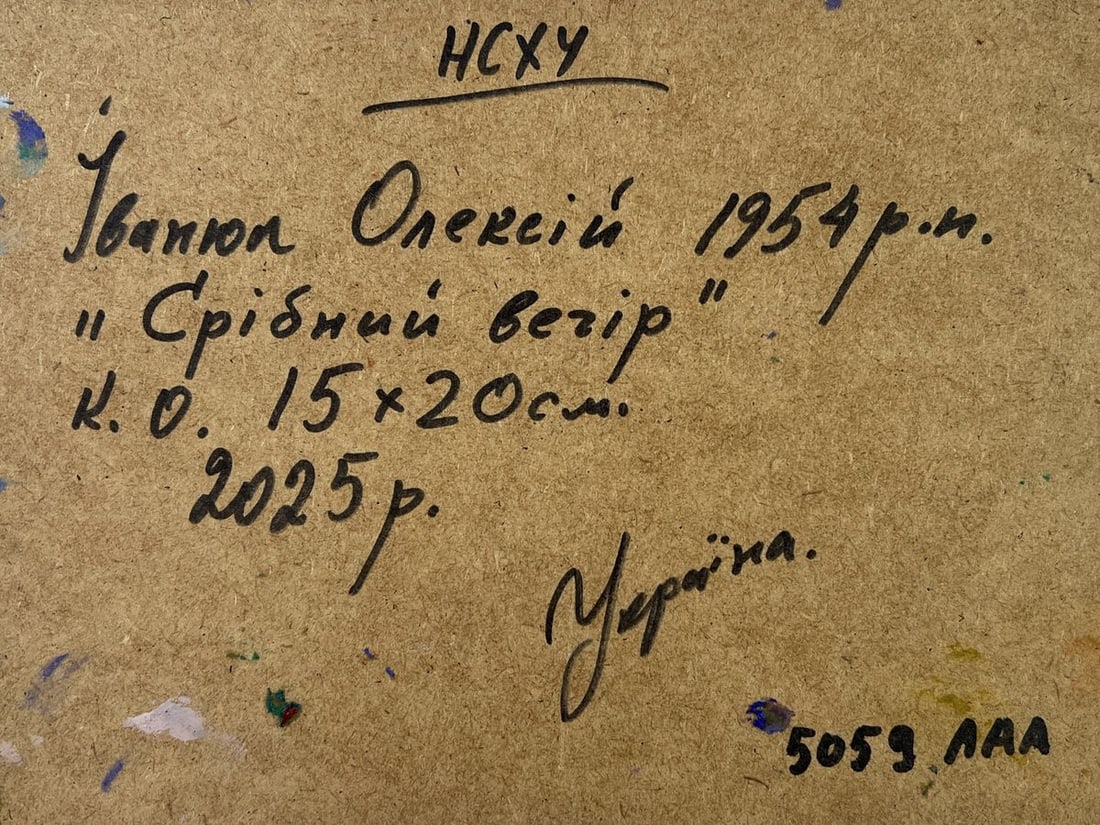 НСХУ
Іванюк Олексій 1954 р.н.
"Срібний вечір"
к.о. 15×20 см.
2025 р.
Україна.
5059 ЛАЛ